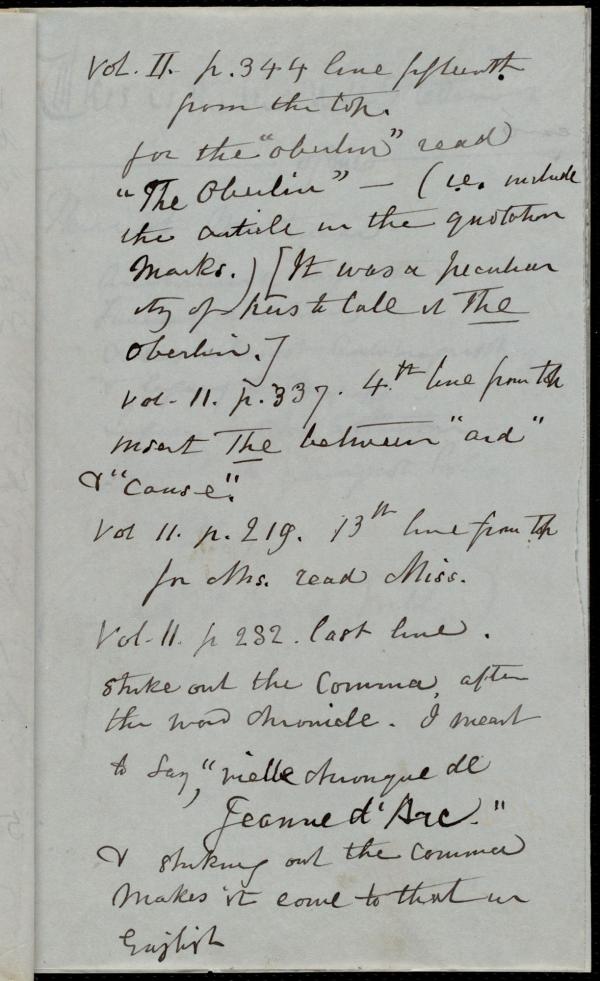 Vol. II. p. 344 line fifteenth
from the top.
for the "oberlin" read
"The Oberlin" — (i.e. include
the article in the quotation
Marks.) [It was a peculiar
ity of hers to call it The
Oberlin.]
Vol. 11. p. 337. 4th line from top
insert The between "and"
& "cause".
Vol 11. p. 219. 13th line from top
for Mrs. read Miss.
Vol. 11. p 232. last line.
strike out the Comma, after
the word chronicle. I meant
to say, "vielle chronique de
Jeanne d'Arc."
& striking out the comma
Makes it come to that in
English